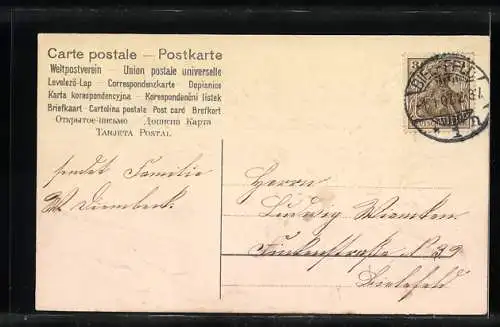 Carte postale — Postkarte
Weltpostverein — Union postale universelle
Levelező-Lap — Correspondenzkarte — Dopisnice
Karta korespondencyjna — Korespondenční lístek
Briefkaart — Cartolina postale — Post card — Brefkort
Открытое-письмо — Дописна Карта
Tarjeta Postal
3
BIELEFELD
sendet Familie
W. Diembeck.
Herrn
Ludwig Wiemken.
Finkenstraße N 39
Bielefeld